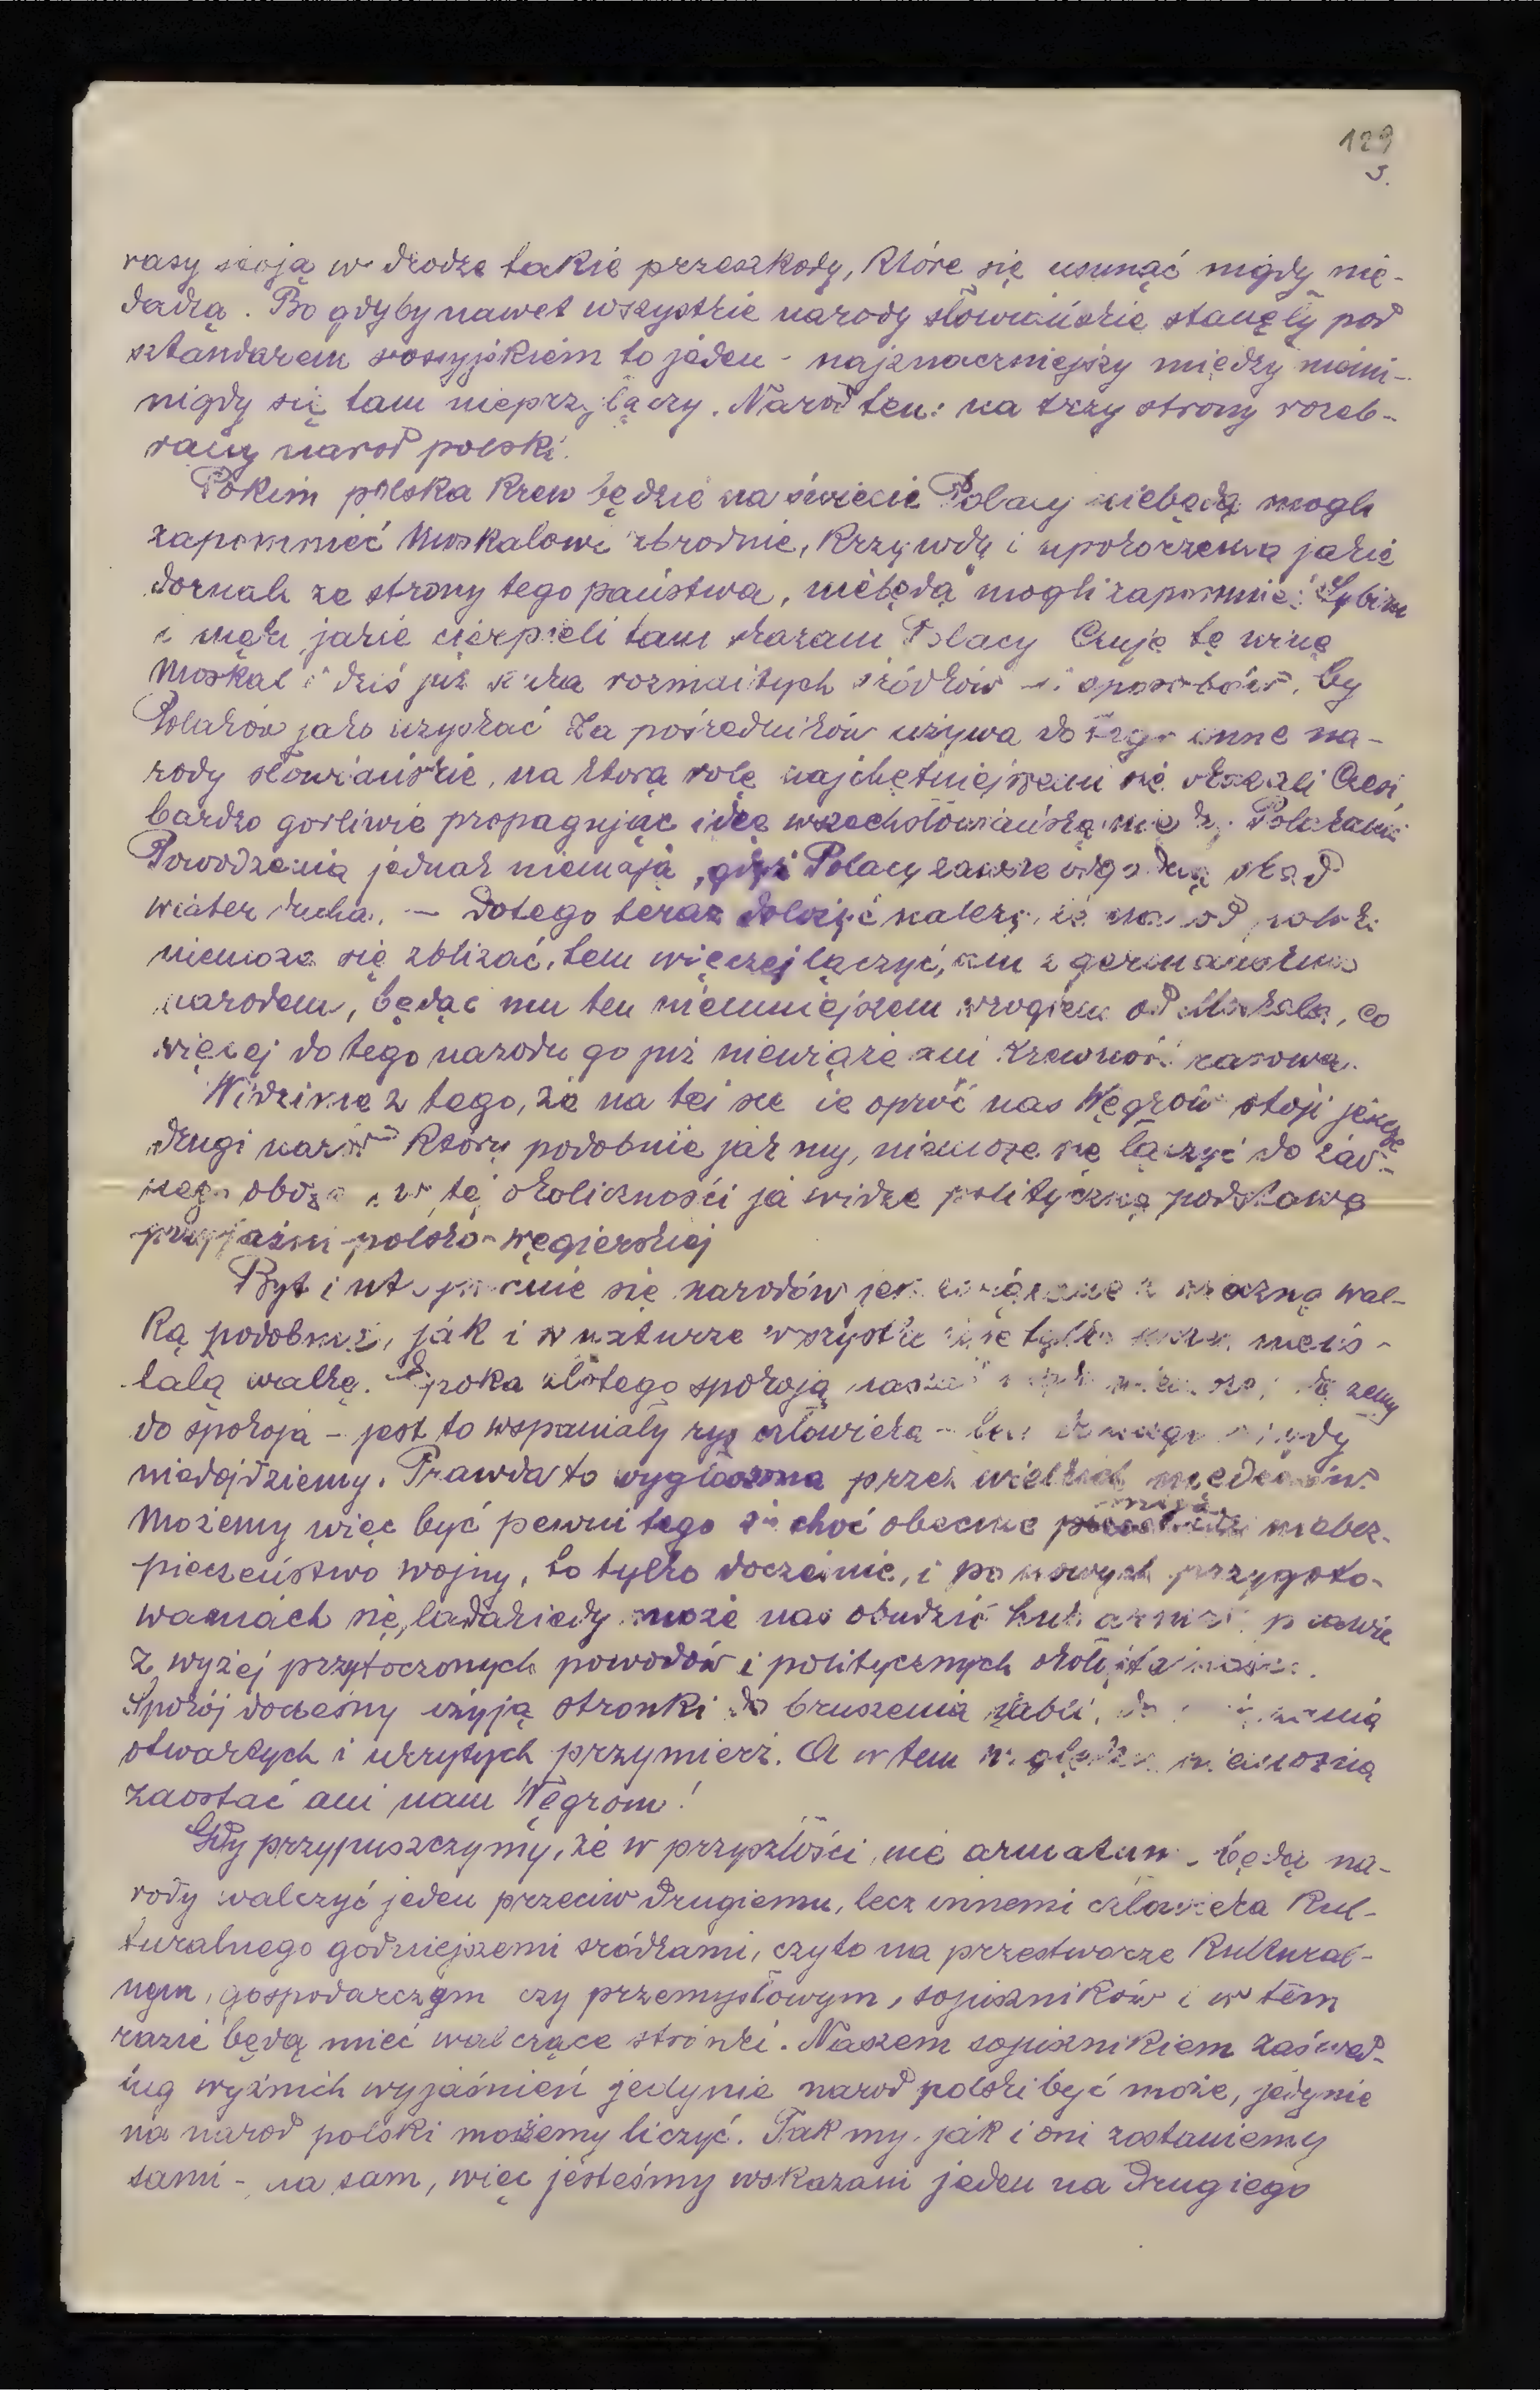 129
5.
rasy stoją w drodze takie przeszkody, które się usunąć nigdy nie-
dadzą. Bo gdyby nawet wszystkie narody słowiańskie stanęły pod
sztandarem rossyjskiem to jeden - najznaczniejszy między niemi -
nigdy się tam nieprzyłączy. Naród ten: na trzy strony rozeb-
rany narod polski.
Pokim polska krew będzie na świecie Polacy niebędą mogli
zapomnieć Moskalowi zbrodnie, krzywdy i upokorzenia jakie
doznali ze strony tego państwa, niebędą mogli zapomnieć Sybiru
i męki jakie cierpieli tam skazani Polacy Czuje tę winę
Moskal i dziś już szuka rozmaitych śródków i sposobów, by
Polaków jako uzyskać Za pośredników używa do tego inne na-
rody słowiańskie, na którą rolę najchętniejszemi się okazali Czesi,
bardzo gorliwie propagując ideę wszechsłowiańską między Polakami
Powodzenia jednak niemają, gdyż Polacy zawsze skąd
wiater ducha. — Dotego teraz dołożyć należy, że narod polski
niemoże się zbliżać, tem więcej łączyć, ani z germańskim
narodem, będąc mu ten niemniejszem wrogiem od Moskala, co
więcej do tego narodu go już niewiąże ani krewność rasowa.
Widzimy z tego, że na tej oproć nas Węgrów stoji jeszcze
drugi narod który podobnie jak my, niemoże się łączyć do żad-
nego obozu, w tej okoliczności ja widzę polityczną podstawę
przyjaźni polsko-węgierskiej
Byt i się narodów jest z wieczną wal-
ką podobnie, jak i w naturze wszystko tylko nieus-
tałą walkę. Epoka złotego spokoju dążemy
do spokoja - jest to wspaniały rys człowieka - lecz do niego nigdy
niedojdziemy. Prawda to wygłoszona przez wielkich mędrców.
Możemy więc być pewni tego że choć obecnie mija niebez-
pieczeństwo wojny, to tylko doczeżnie, i po nowych przygoto-
waniach się, ladakiedy może nas obudzić huk armat prawie
z wyżej przytoczonych powodów i politycznych
Spokój docześny użyją stronki do bruszenia szabli, do
otwartych i ukrytych przymierz. A w tem względzie niemożna
zaostać ani nam Węgrom!
Gdy przypuszczymy, że w przyszłości nie armatami będą na-
rody walczyć jeden przeciw drugiemu, lecz innemi człowieka kul-
turalnego godniejszemi śródkami, czyto na przestworze kultural-
nym, gospodarczym czy przemysłowym, sojuszników i w tem
razie będą mieć walczące stronki. Naszem sojusznikiem zaś wed-
ług wyżnich wyjaśnień jedynie narod polski być może, jedynie
na narod polski możemy liczyć. Tak my, jak i oni zostaniemy
sami - na sam, więc jesteśmy wskazani jeden na drugiego